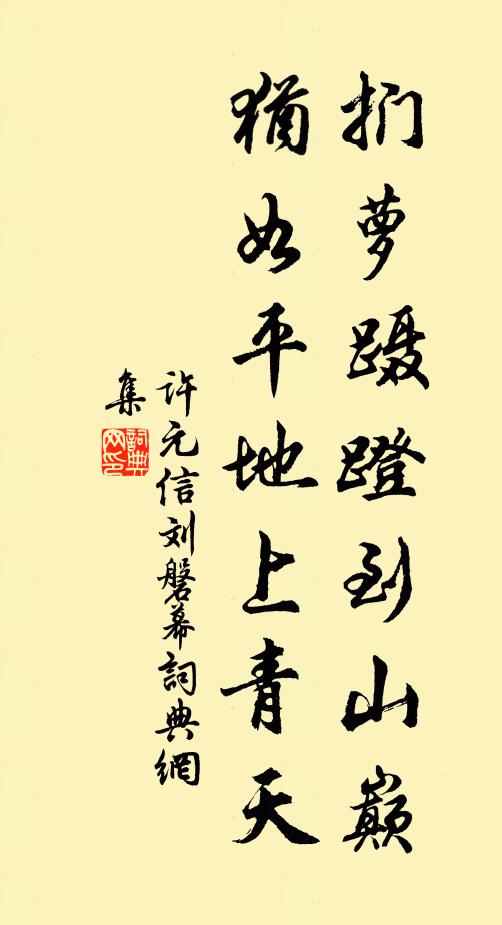 扪萝蹑蹬到山巅
犹如平地上青天
许元信刘磐幕詞典網
集
詞典网印